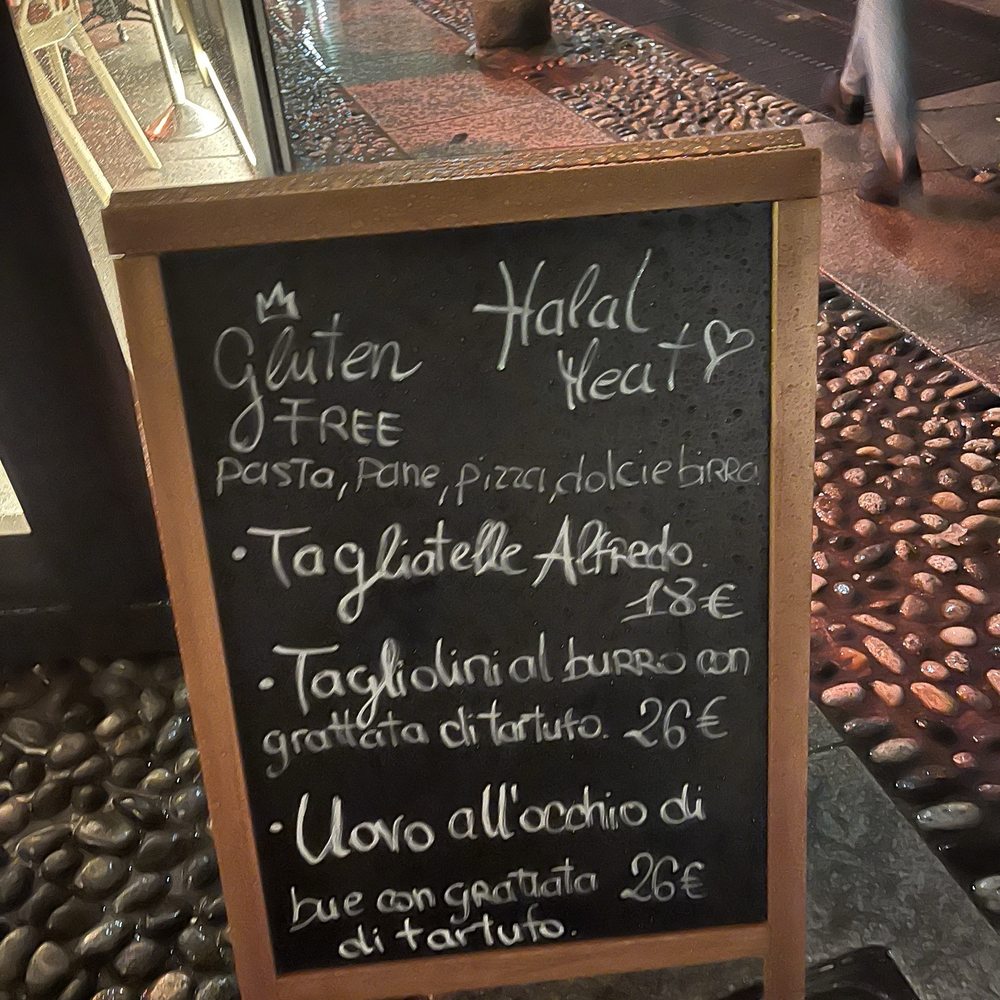 Gluten
FREE
Halal
Meat
pasta, pane, pizza, dolci e birra
• Tagliatelle Alfredo.
18€
• Tagliolini al burro con
grattata di tartufo. 26€
• Uovo all'occhio di
bue con grattata 26€
di tartufo.